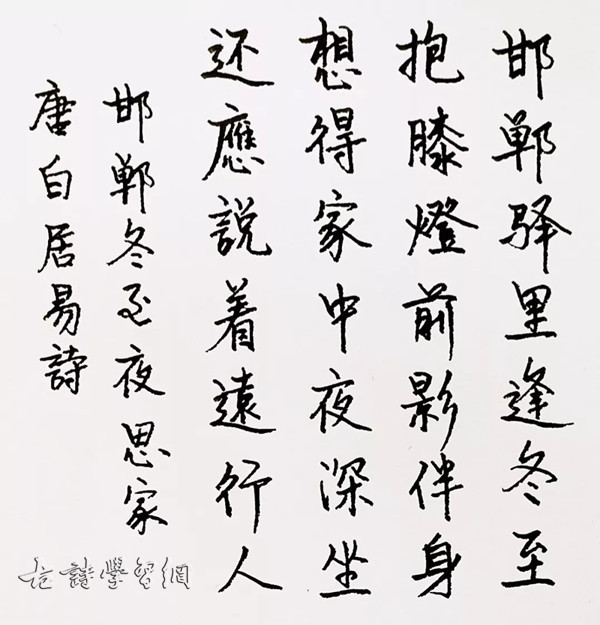 邯郸驿里逢冬至
抱膝燈前影伴身
想得家中夜深坐
还應説着遠行人
邯郸冬至夜思家
唐白居易詩
古詩學習網